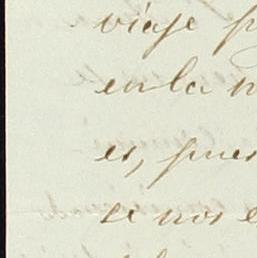 viaje p
en la n
es, pues
se nos e